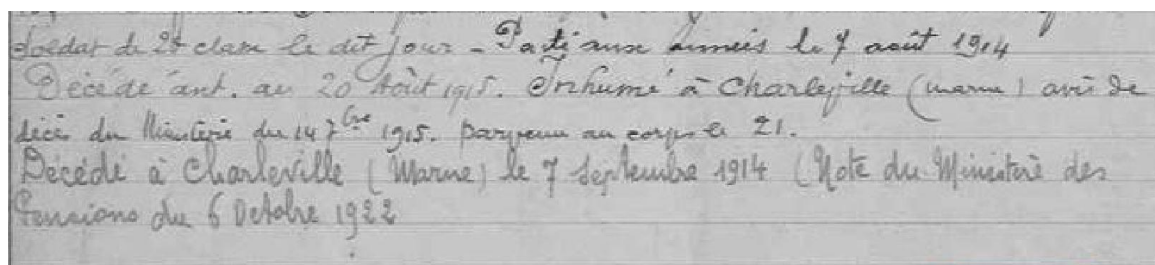 Soldat de 2e classe le dit jour - Parti aux armées le 7 août 1914
Décédé ant. au 20 Août 1915. Inhumé à Charleville (marne) avis de
décès du Ministère du 14 7bre 1915. parvenu au corps le 21.
Décédé à Charleville (Marne) le 7 Septembre 1914 (Note du Ministère des
Pensions du 6 Octobre 1922